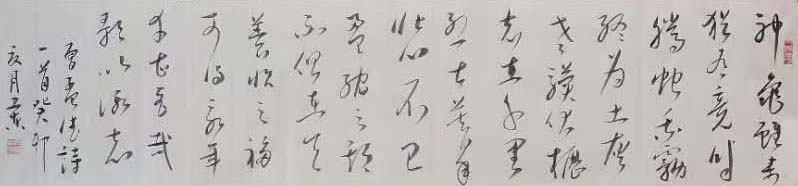 神龜雖壽
猶有竟時
騰蛇乘霧
終為土灰
老驥伏櫪
志在千里
烈士暮年
壯心不已
盈縮之期
不但在天
養怡之福
可得永年
幸甚至哉
歌以詠志
曹孟德詩
一首癸卯
夏月